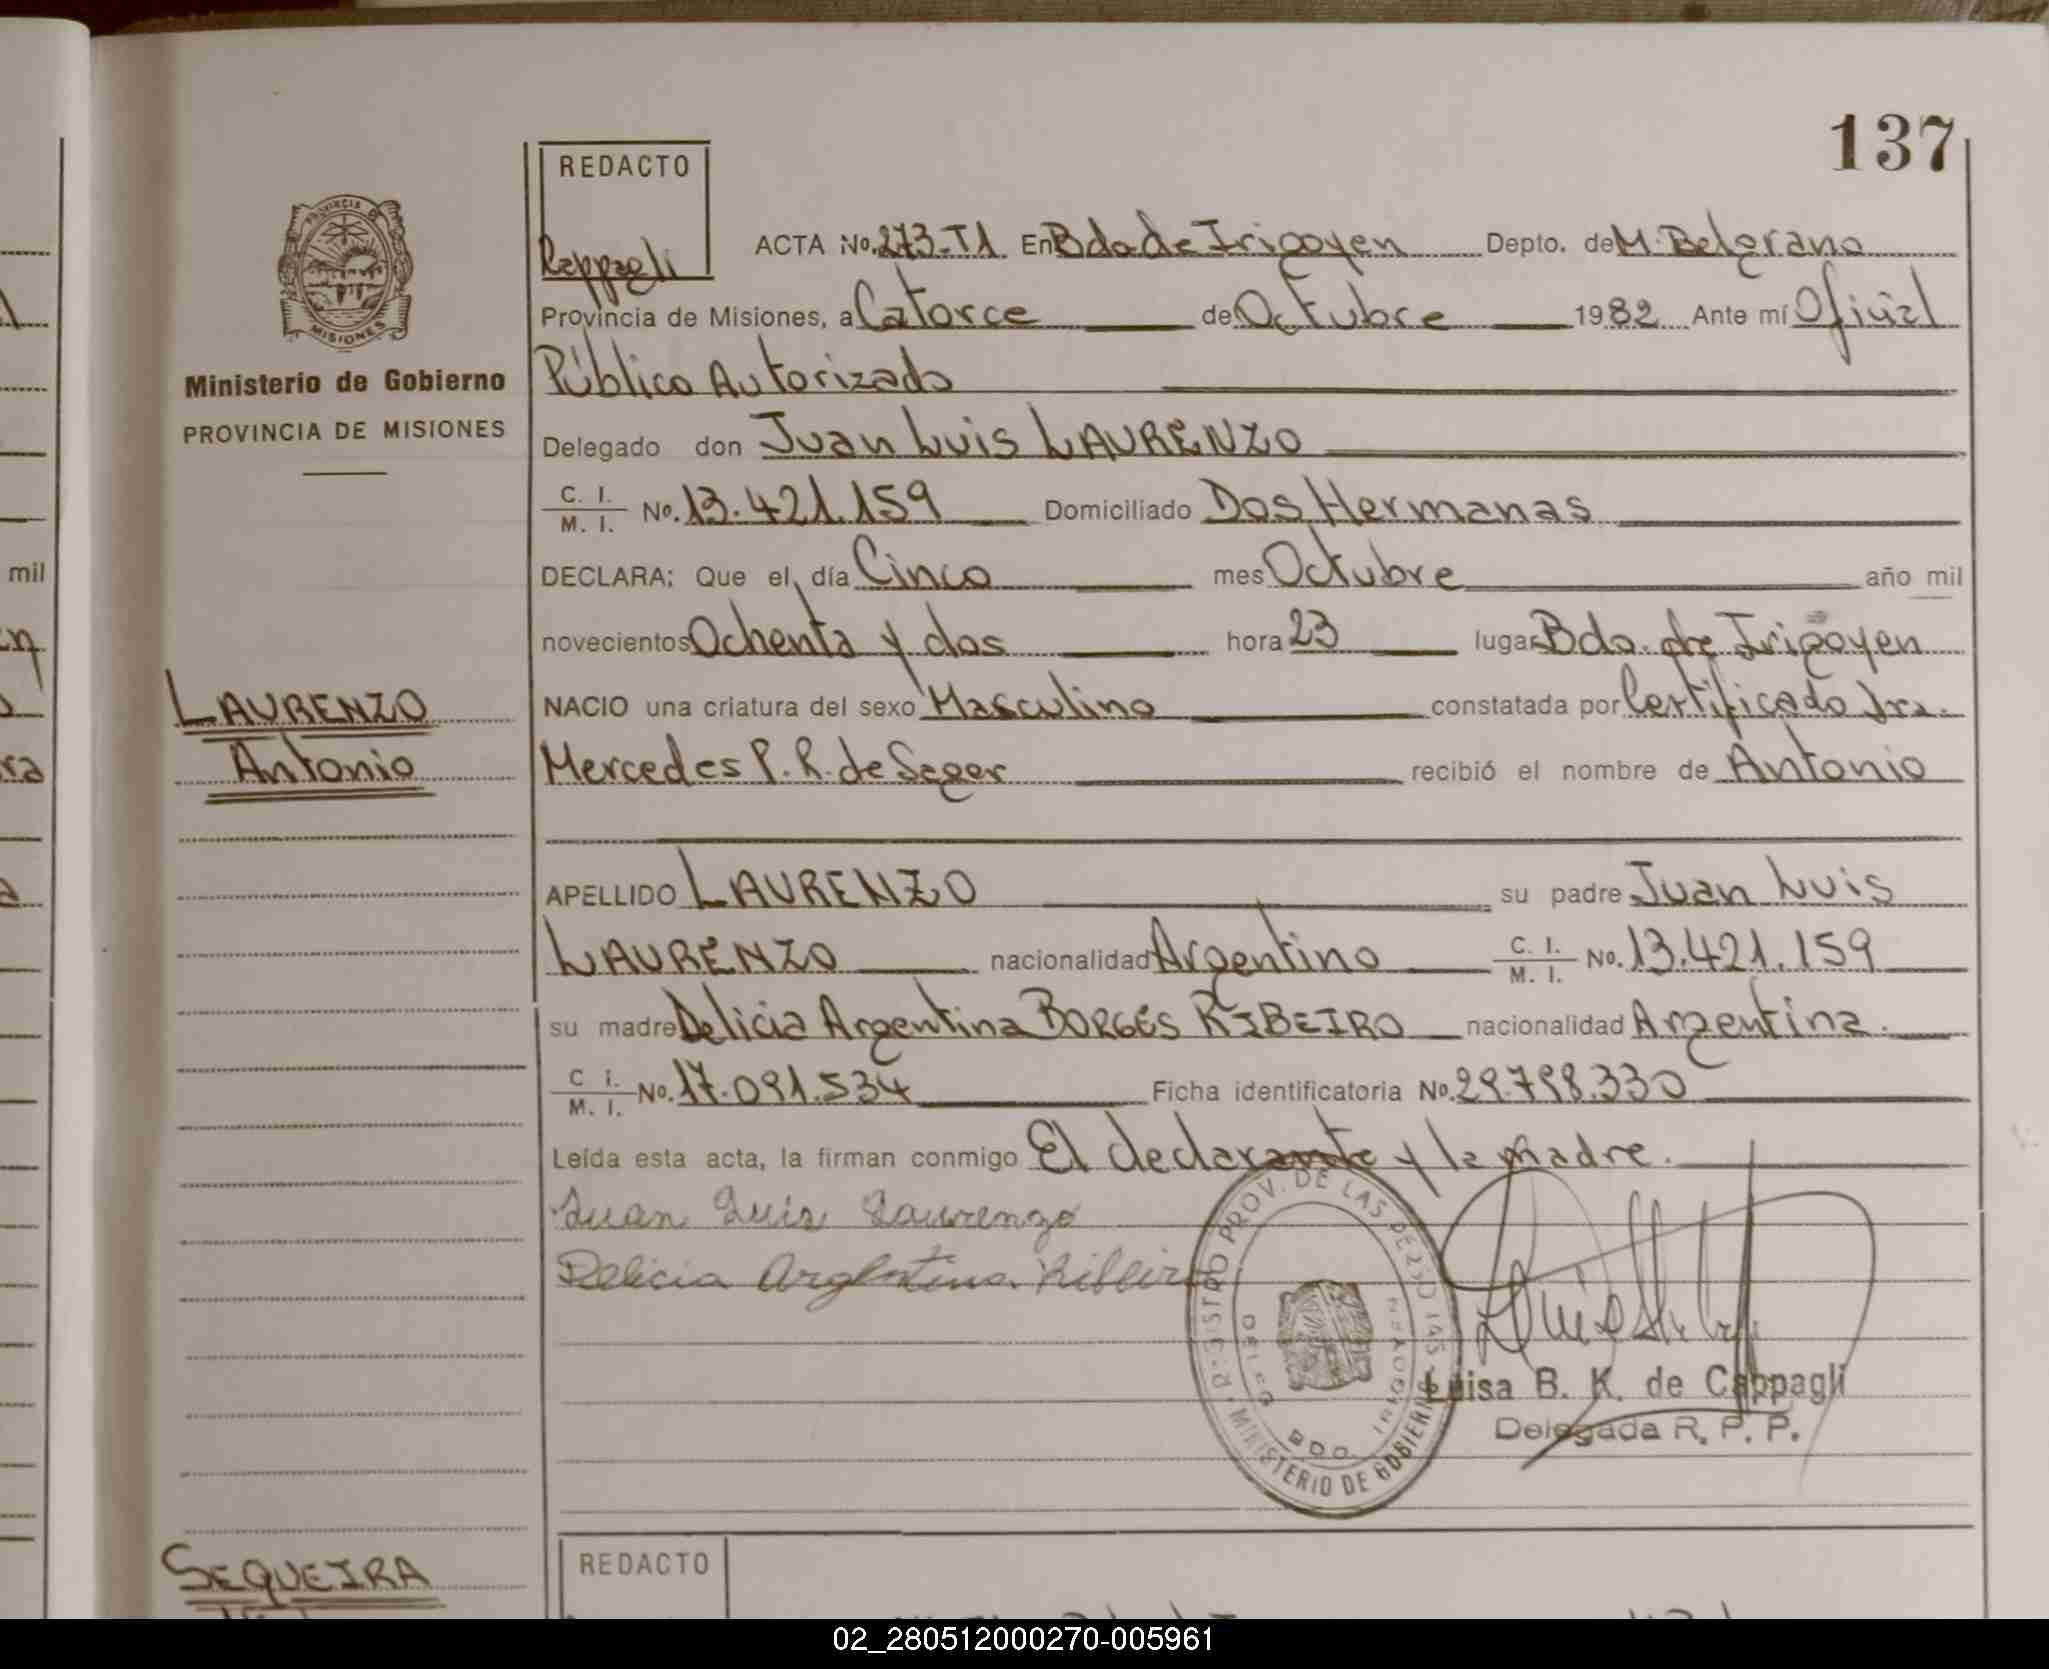 137
REDACTO
Cappagli
PROVINCIA DE
MISIONES
Ministerio de Gobierno
PROVINCIA DE MISIONES
ACTA No. 273-T1 En Bdo de Irigoyen Depto. de M. Belgrano
Provincia de Misiones, a Catorce de Octubre 1982 Ante mí Oficial
Público Autorizado
Delegado don Juan Luis LAURENZO
C. I. / M. I. No. 13.421.159 Domiciliado Dos Hermanas
DECLARA: Que el día Cinco mes Octubre año mil
novecientos Ochenta y dos hora 23 lugar Bdo. de Irigoyen
LAURENZO
NACIO una criatura del sexo Masculino constatada por Certificado Sra.
Antonio
Mercedes P. R. de Seger recibió el nombre de Antonio
APELLIDO LAURENZO su padre Juan Luis
LAURENZO nacionalidad Argentino C. I. / M. I. No. 13.421.159
su madre Delicia Argentina BORGES RIBEIRO nacionalidad Argentina.
C i. / M. I. No. 17.091.534 Ficha identificatoria No. 29.798.330
Leída esta acta, la firman conmigo El declarante y la madre.
Juan Luis Laurenzo
Delicia Argentina Ribeiro
PROV. DE LAS
MINISTERIO DE GOBIERNO
BDO.
Luisa B. K. de Cappagli
Delegada R. P. P.
SEQUEIRA
REDACTO
mil
02_280512000270-005961